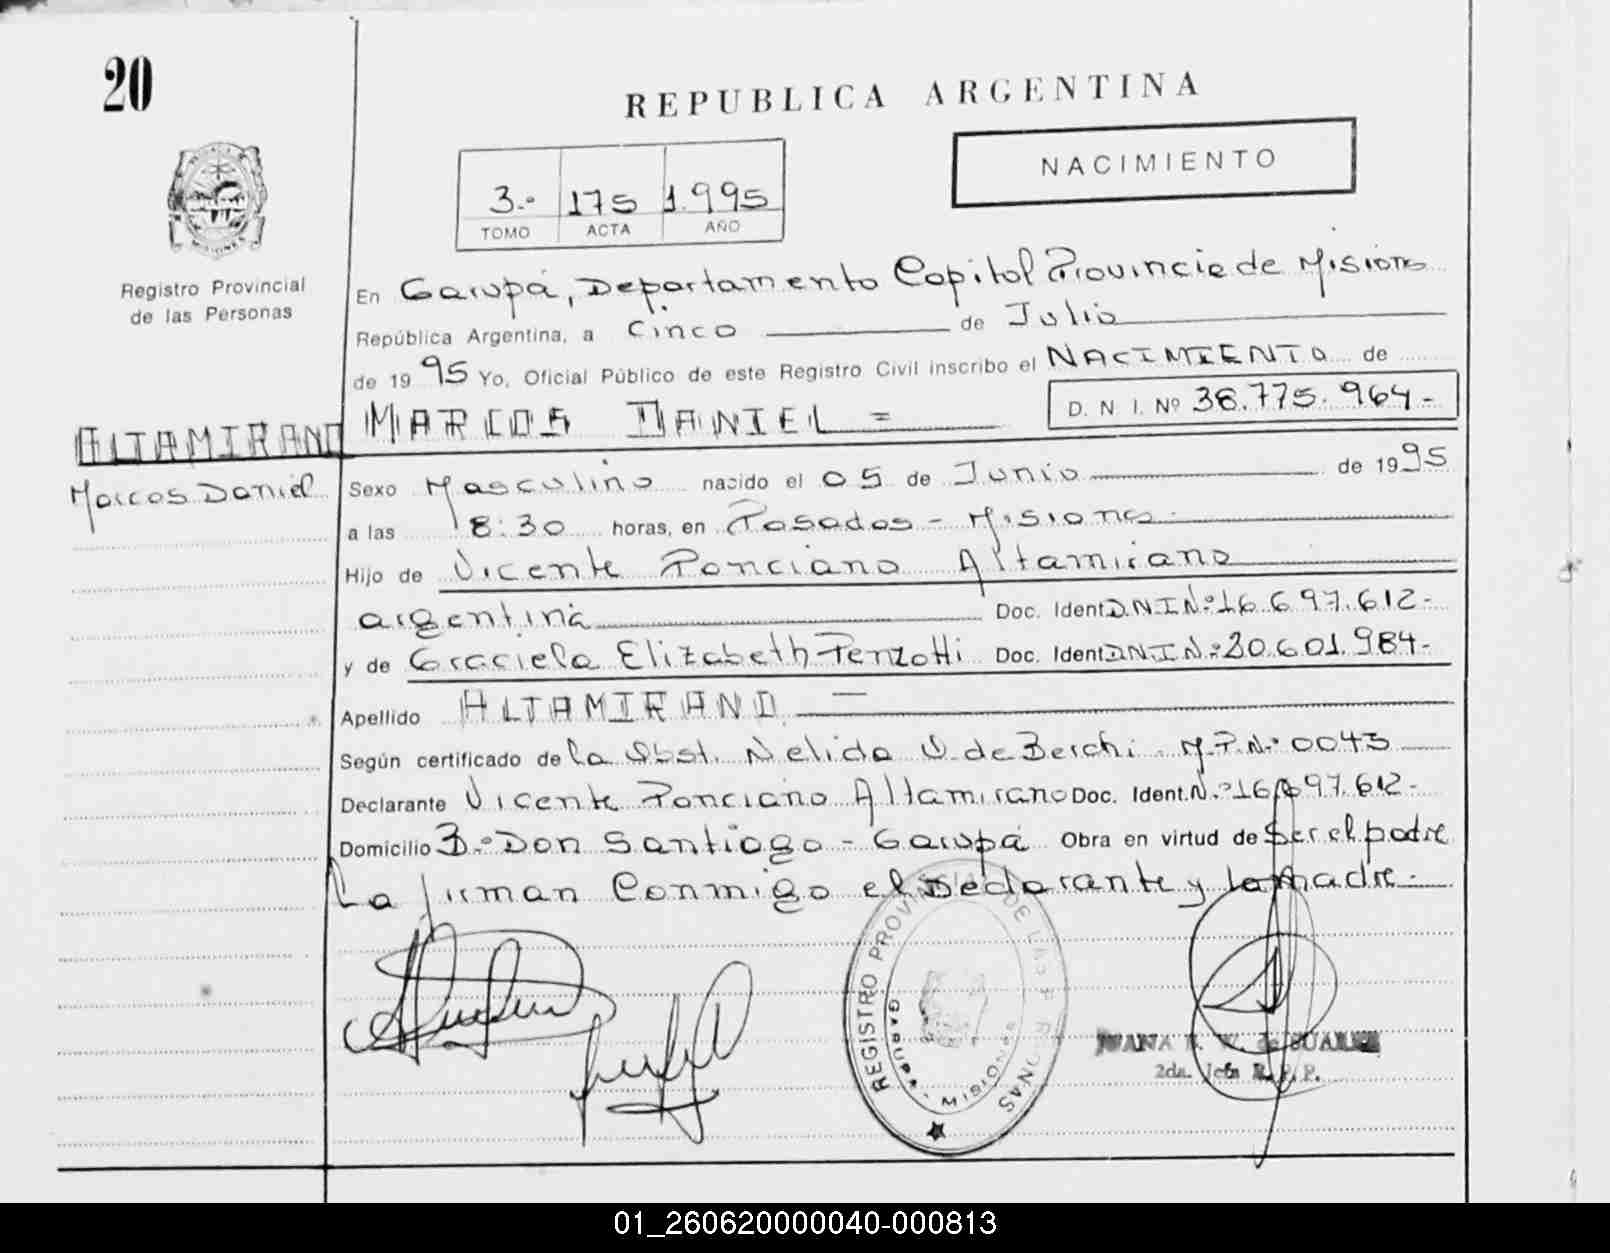 20
REPUBLICA ARGENTINA
NACIMIENTO
3.º 175 1.995
TOMO ACTA AÑO
Registro Provincial
de las Personas
En Garupá, Departamento Capital Provincia de Misiones
República Argentina, a Cinco de Julio
de 1995 Yo, Oficial Público de este Registro Civil inscribo el NACIMIENTO de
MARCOS DANIEL = D. N. I. Nº 38.775.964-
ALTAMIRANO
Marcos Daniel
Sexo Masculino nacido el 05 de Junio de 1995
a las 18:30 horas, en Posadas - Misiones
Hijo de Vicente Ponciano Altamirano
argentina Doc. Ident D.N.I.Nº 16.697.612-
y de Graciela Elizabeth Penzotti Doc. Ident D.N.I.Nº 20.601.984-
Apellido ALTAMIRANO -
Según certificado de la Obst. Nelida V. de Berchi - M.P.Nº 0043
Declarante Vicente Ponciano Altamirano Doc. Ident. Nº 16.697.612-
Domicilio B.º Don Santiago - Garupá Obra en virtud de Ser el padre
La firman Conmigo el Declarante y la madre.
REGISTRO PROVINCIAL DE LAS PERSONAS
GARUPA - MISIONES
JUANA de SUAREZ
2da. Jefe R. P. P.
01_260620000040-000813